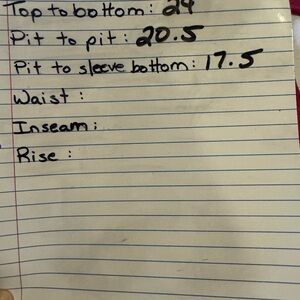 Top to bottom: 24
Pit to pit: 20.5
Pit to sleeve bottom: 17.5
Waist:
Inseam:
Rise: